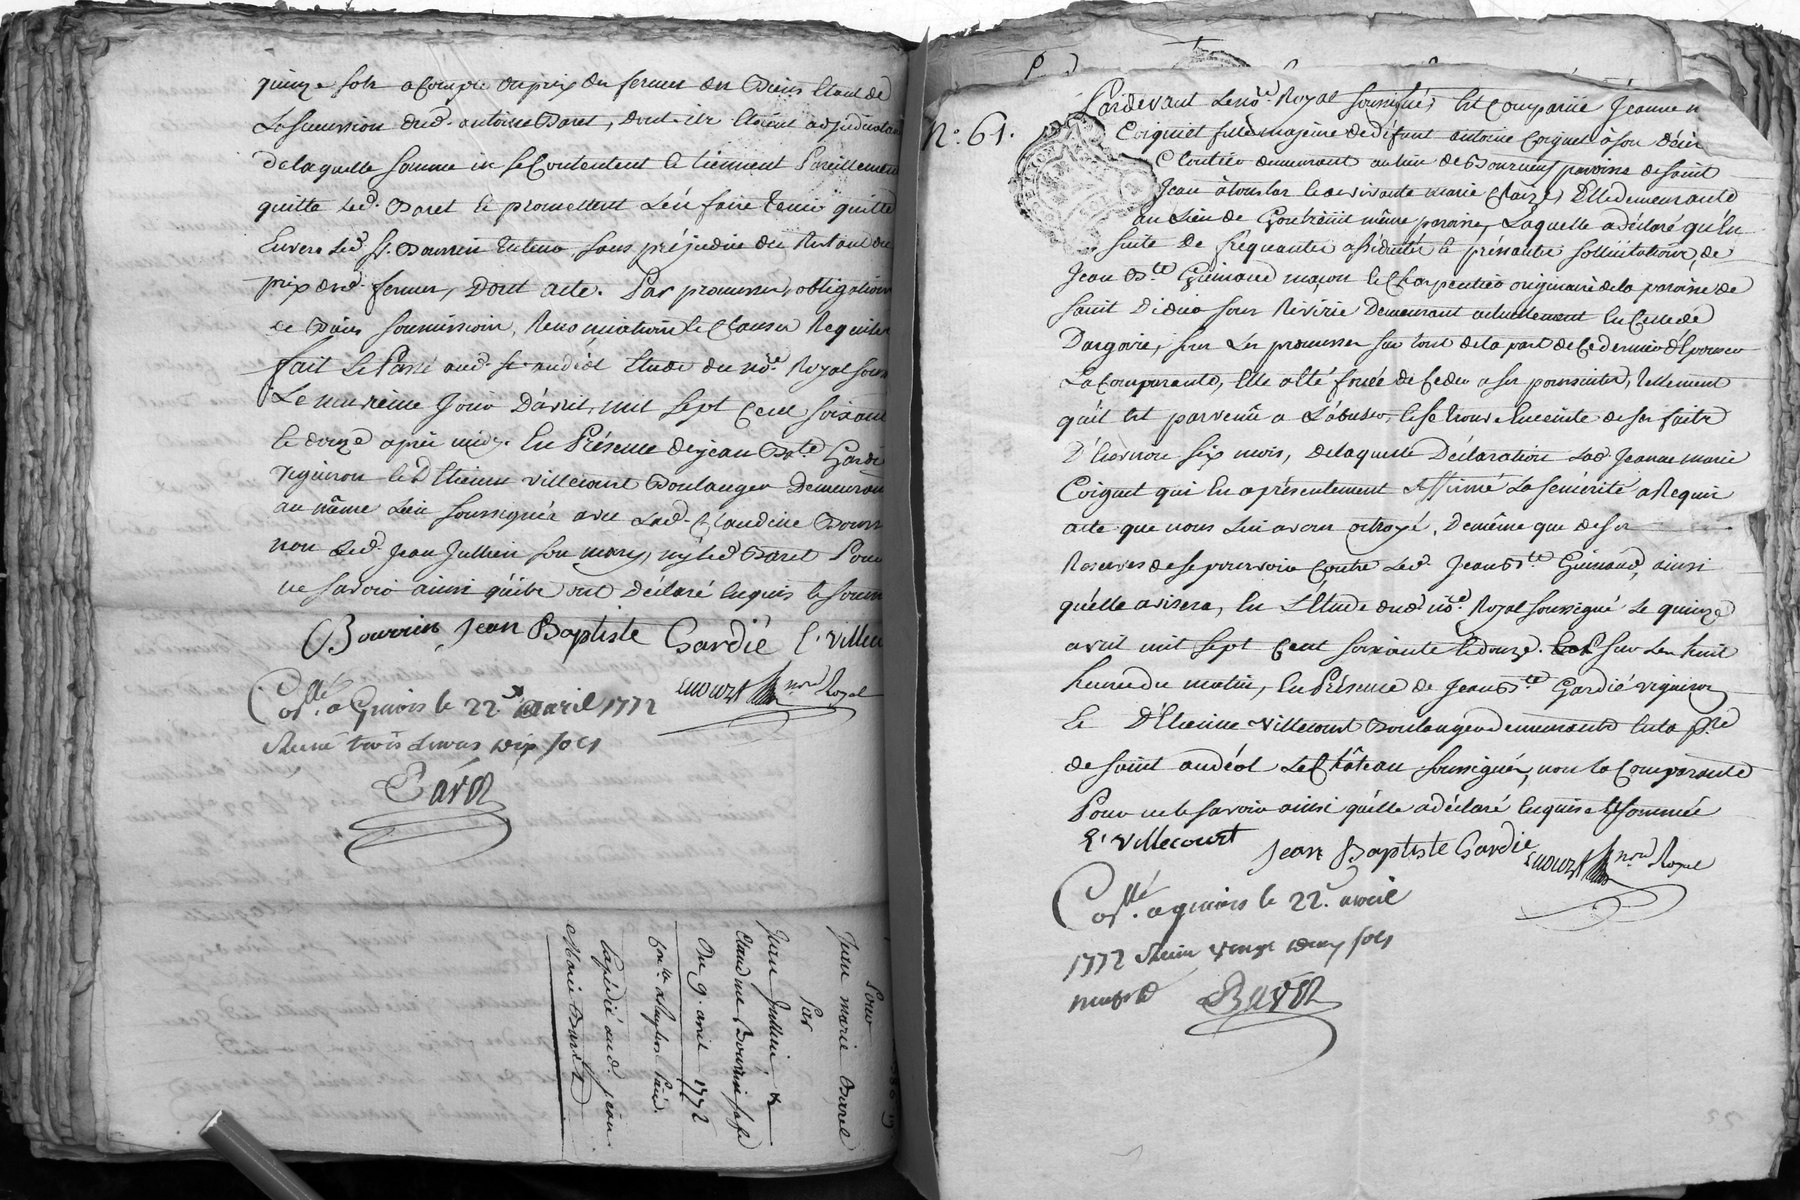 quinze sols acompte du prix des fermes des Biens Etant de
La Succession dud. antoine Baret, dont ils Etoient adjudicatai
de laquelle somme ils se Contentent Et tiennent Pareillement
quitte Led. Baret Et promettent L'en faire tenir quitte
Envers Led. Sr. Bourrin Tuteur, sans préjudice du Restant du
prix desd. fermes, Dont acte. Par promesses, obligations
de Biens soumissions, Renonciations Et Clauses Requises
fait Et Passé aud. St. andéol Etude du no.re Royal sous
Le neuvieme Jour D'avril, mil sept Cent soixante
Et douze après midy. En Présence de jean Bte. Gardié
vigneron Et d'Etienne villecourt Boulanger Demeurant
au même Lieu soussignés avec Lad. Claudine Bourri
non Led. Jean Jullien son mary, ny led. Baret Pour
ne savoir ainsi qu'ils ont Déclaré Enquis Et somm
Bourrin, Jean Baptiste Gardié E. Villec
Enourt nore. Royal
Collé. a Givors le 22e. avril 1772
Reçu trois Livres dix sols
Bavoz
Pour
Jean marie Baret
Par
Jean Jullien &
Claudine Bourrin sa fe
Du 9. avril 1772
Expédié aud. jean
Marie Baret
N°. 61.
Pardevant Le no.re Royal soussigné, Est Comparüe Jeanne m
Coignet fille majeure de défunt antoine Coignet à son Décès
Cloutier demeurant au lieu de Bourneuf paroisse de saint
Jean à touslas Et de vivante marie Claize, Elle demeurante
au Lieu de même paroisse, Laquelle a déclaré qu'En
suite de fréquantes assiduités Et pressantes sollicitations, de
Jean Bte. Guinand maçon Et Charpentier originaire de la paroisse de
saint Didier sous Riverie Demeurant actuellement En Celle de
Dargoire, sur Les promesses sur tout de la part de Ce dernier d'Epouser
La Comparante, Elle a Eté forcée de Ceder a ses poursuites, tellement
qu'il Est parvenu a L'abuser, Et se trouve Enceinte de ses faits
D'Environ six mois, de laquelle Déclaration Lad. Jeanne marie
Coignet qui En a présentement affirmé La sincérité a Requis
acte que nous Lui avons octroyé, De même que de ses
Reserves de se pourvoir Contre Led. Jean Bte. Guinand, ainsi
qu'elle avisera, En L'Etude dud. no.re Royal soussigné Le quinze
avril mil sept Cent soixante Et douze. sur Les huit
heures du matin, En Présence de Jean Bte. Gardié vigneron
Et D'Etienne villecourt Boulanger demeurants En la pse.
de saint andéol Le Château soussignés, non la Comparante
Pour ne le savoir ainsi qu'elle a déclaré Enquise Et sommée
E. Villecourt Jean Baptiste Gardié Enourt nore. Royal
Collé. a givors le 22e. avril
1772 Reçu sols
Bavoz